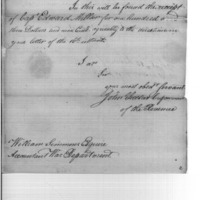 In this will be found the receipt
of Capt Edward Miller for one hundred &
three Dollars and nine Cents agreeably to the
your letter of the 16th
I am
Sir
your most obedt servant
John
of the Revenue
William Simmons Esquire
Accountant War Department